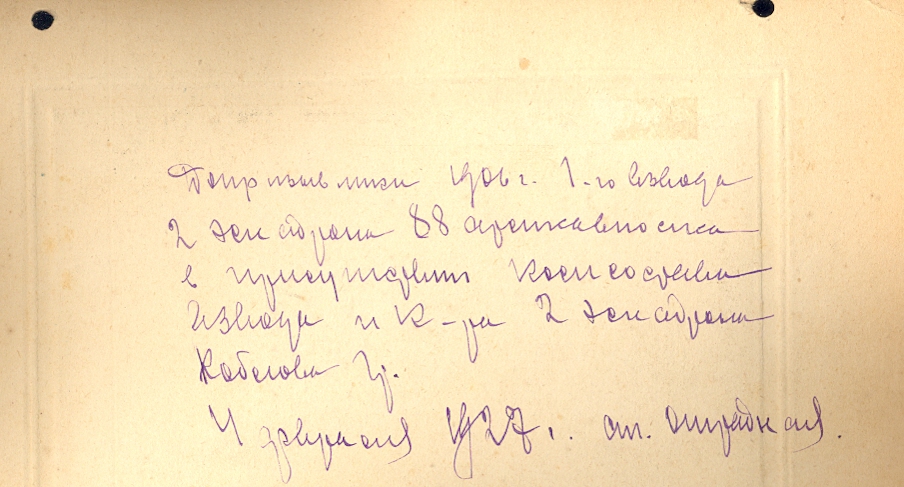 Допризывники 1906 г. 1-го взвода
2 эскадрона 88 аркавполка
в присутствии комсостава
взвода и К-ра 2 эскадрона
Кобелова Гр.
4 февраля 1927 г. ст. Отрадная.